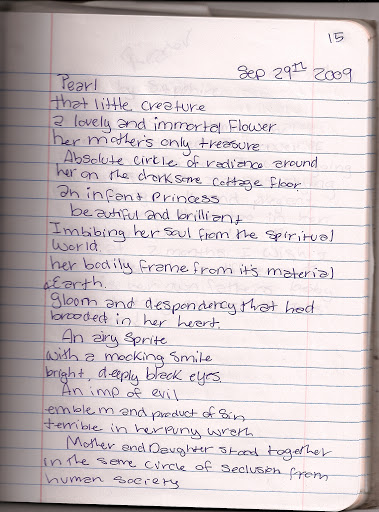 15
Sep 29th 2009
Pearl
that little creature
a lovely and immortal Flower
her mother's only treasure
Absolute circle of radiance around
her on the darksome cottage floor.
an infant Princess
beautiful and brilliant
Imbibing her soul from the spiritual
world.
her bodily frame from its material
Earth.
gloom and despondency that had
brooded in her heart.
An airy sprite
with a mocking smile
bright, deeply black eyes.
An imp of evil
emblem and product of Sin
terrible in her puny wrath
Mother and Daughter stood together
in the same circle of seclusion from
human society